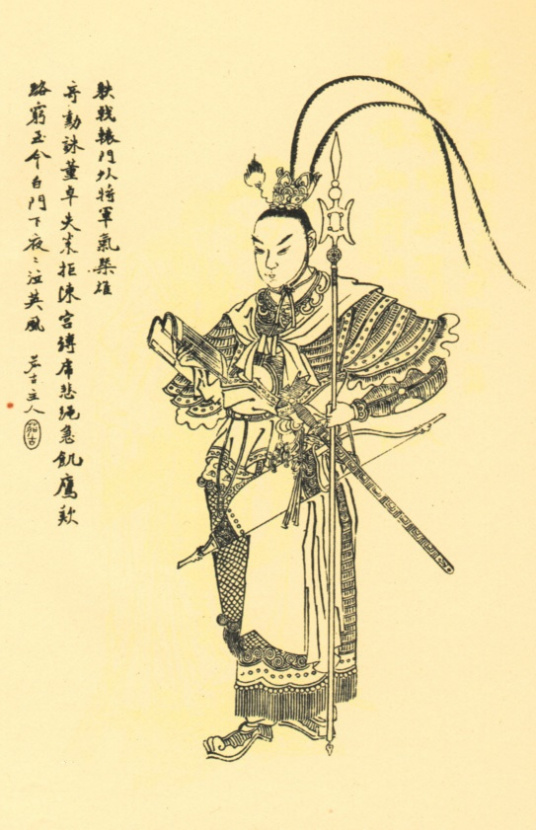 䠶戟轅門外將軍氣桀雄
奇勳誅董卓失策拒陳宮縛虎愁繩急飢鷹歎
路窮至今白門下夜〻泣英風 古主人